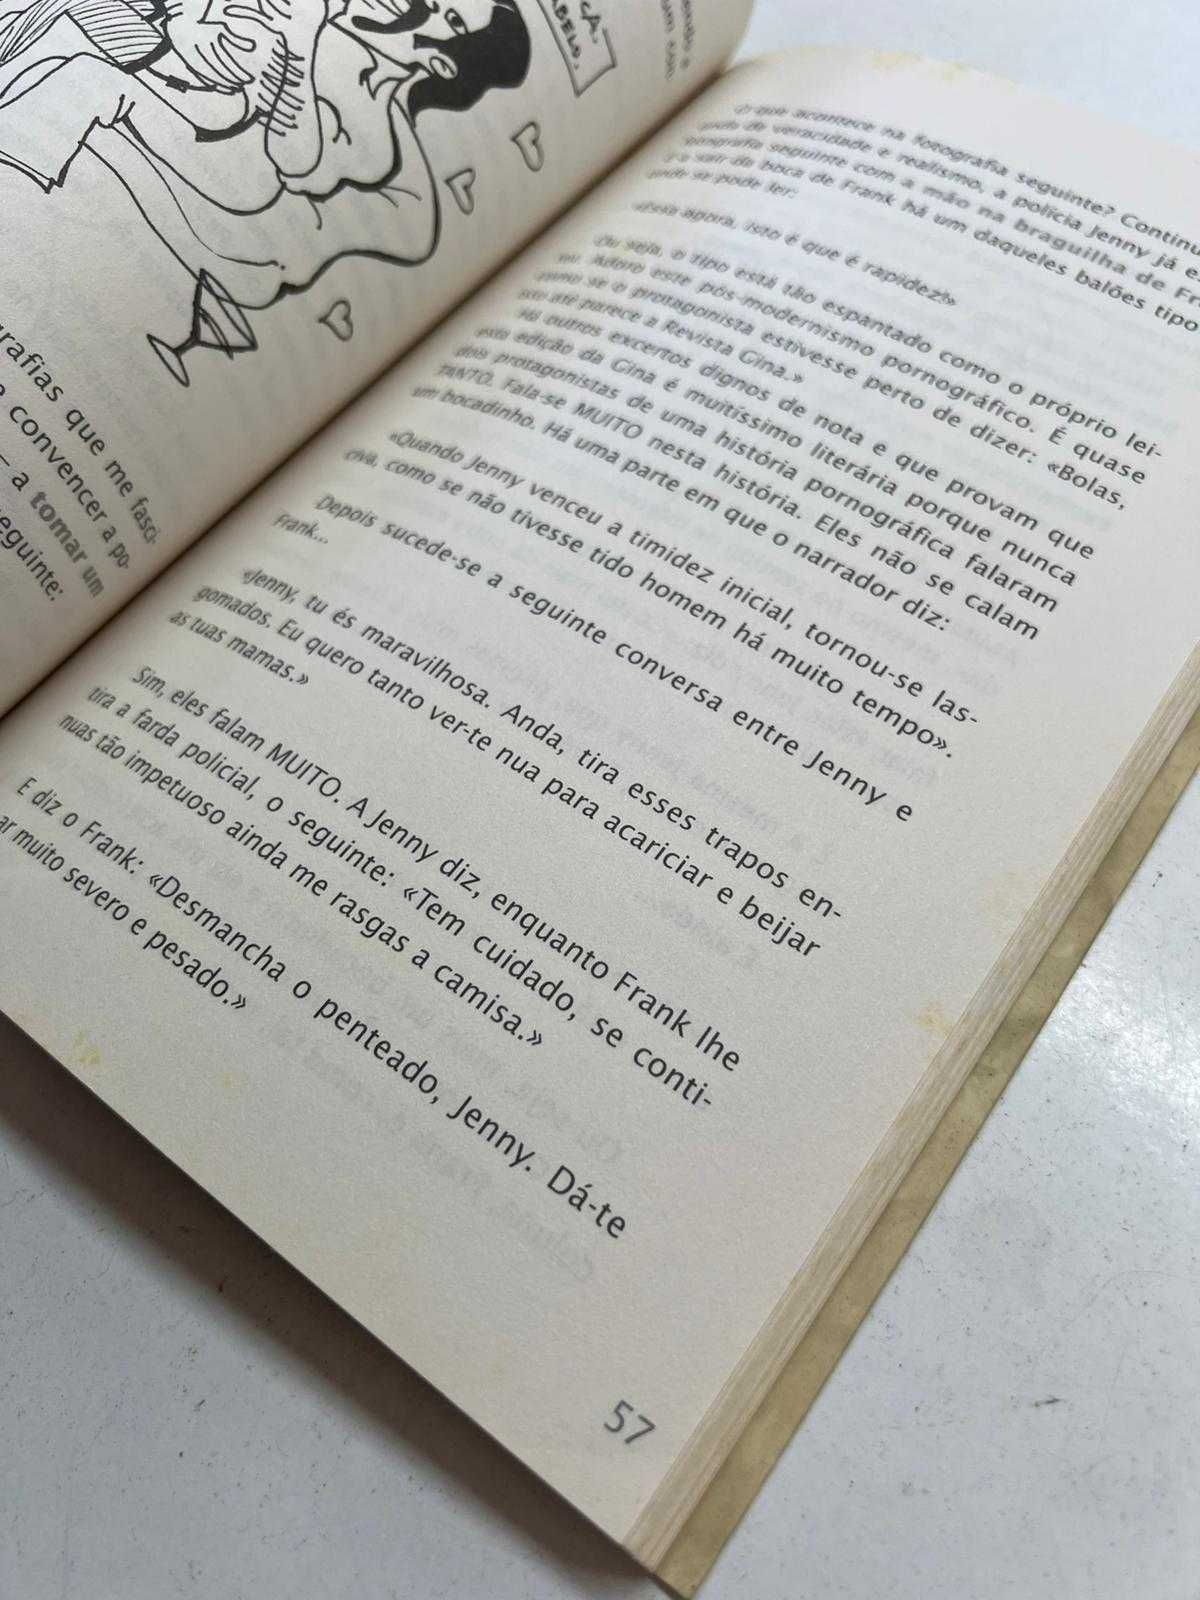 CÁ.
ABELO.
rafias que me fasci-
e convencer a po-
– a tomar um
eguinte:
O que acontece na fotografia seguinte? Continu
ando de veracidade e realismo, a polícia Jenny já es
tografia seguinte com a mão na braguilha de Fr
e a sair da boca de Frank há um daqueles balões tipo
onde se pode ler:
«Essa agora, isto é que é rapidez!»
Ou seja, o tipo está tão espantado como o próprio lei-
tor. Adoro este pós-modernismo pornográfico. É quase
como se o protagonista estivesse perto de dizer: «Bolas,
isto até parece a Revista Gina.»
Há outros excertos dignos de nota e que provam que
esta edição da Gina é muitíssimo literária porque nunca
dois protagonistas de uma história pornográfica falaram
TANTO. Fala-se MUITO nesta história. Eles não se calam
um bocadinho. Há uma parte em que o narrador diz:
«Quando Jenny venceu a timidez inicial, tornou-se las-
civa, como se não tivesse tido homem há muito tempo».
Depois sucede-se a seguinte conversa entre Jenny e
Frank...
«Jenny, tu és maravilhosa. Anda, tira esses trapos en-
gomados. Eu quero tanto ver-te nua para acariciar e beijar
as tuas mamas.»
Sim, eles falam MUITO. A Jenny diz, enquanto Frank lhe
tira a farda policial, o seguinte: «Tem cuidado, se conti-
nuas tão impetuoso ainda me rasgas a camisa.»
E diz o Frank: «Desmancha o penteado, Jenny. Dá-te
ar muito severo e pesado.»
57